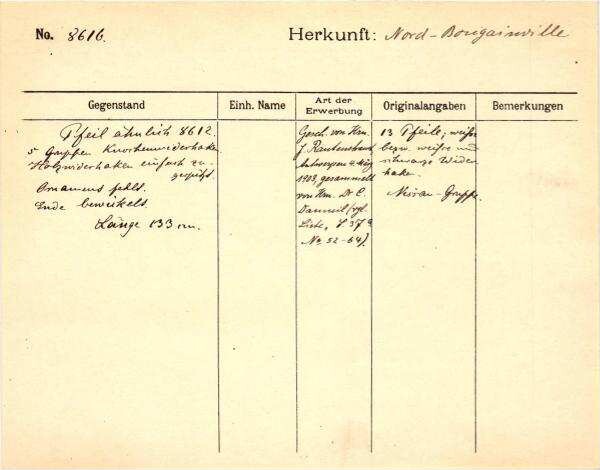 No. 8616.
Herkunft: Nord-Bougainville
Gegenstand
Einh. Name
Art der
Erwerbung
Originalangaben
Bemerkungen
Pfeil ähnlich 8612.
5 Gruppen Knochenwiderhaken
Holzwiderhaken einfach zu-
gespitzt
Ornament fehlt.
Ende bewickelt.
Länge 133 cm.
Gesch. von Hrn.
J.
Antwerpen
1903, gesammelt
von Hrn. Dr C.
Danneil (vgl.
Liste, S 37
No 52-64).
13 Pfeile; weiße
bezw. weiße und
schwarze Wider
haken.